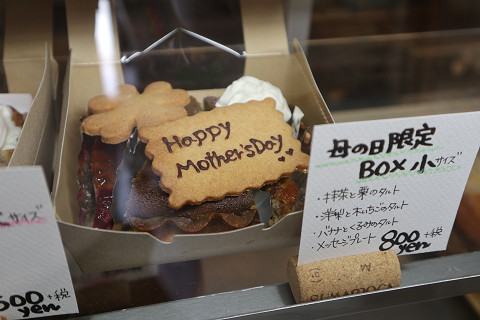 Happy
Mother's Day!
母の日限定
BOX 小サイズ
・抹茶と栗のタルト
・洋梨と木いちごのタルト
・バナナとくるみのタルト
・メッセージプレート
800 +税
yen
サイズ
500 +税
yen